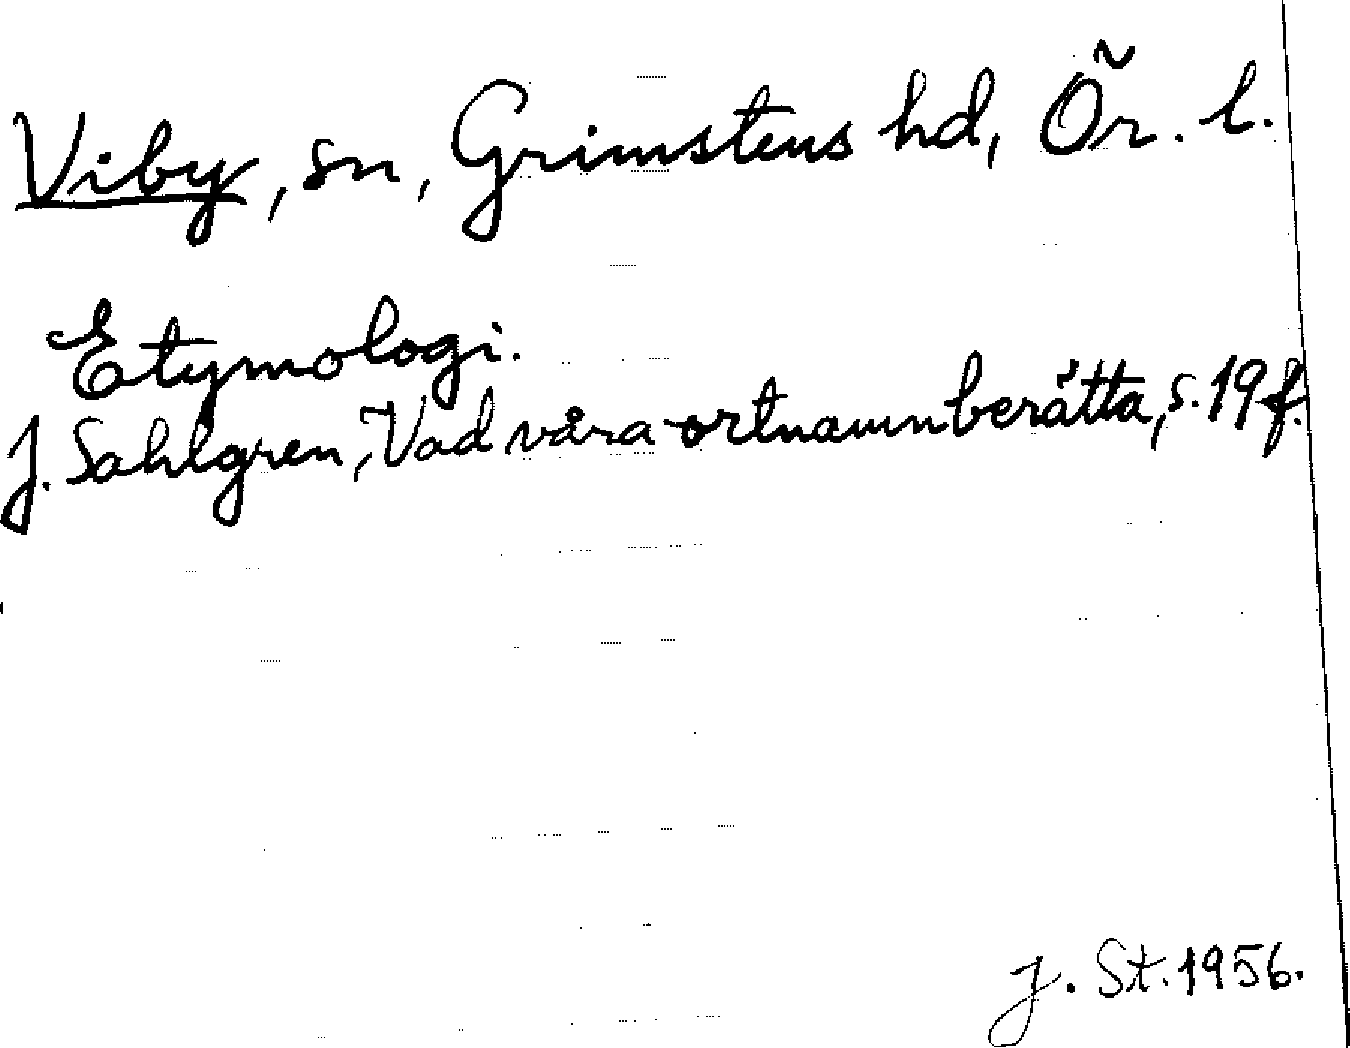 Viby, sn, Grimstens hd, Ör. l.
Etymologi.
J. Sahlgren, Vad våra ortnamn berätta, s. 19 f.
J. St. 1956.